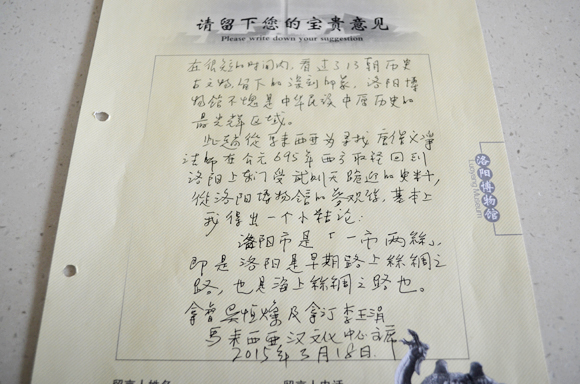 请留下您的宝贵意见
Please write down your suggestion
在很短的时间内，看过了13朝历史
古文物留下的深刻印象，洛阳博
物馆不愧是中华民族中原历史的
最光辉区域。
此趟從马来西亚为寻找唐僧义淨
法师在公元695年西方取经回到
洛阳上东门受武则天跪迎的史料，
從洛阳博物馆的参观后，基本上
我得出一个小结论：
洛阳市是「一市两絲」，
即是洛阳是早期路上絲綢之
路，也是海上絲綢之路也。
拿督吴恒燦及拿汀李玉涓
马来西亚汉文化中心主席
2015年3月18日.
洛阳博物馆
Luoyang Museum
留言人姓名
留言人电话